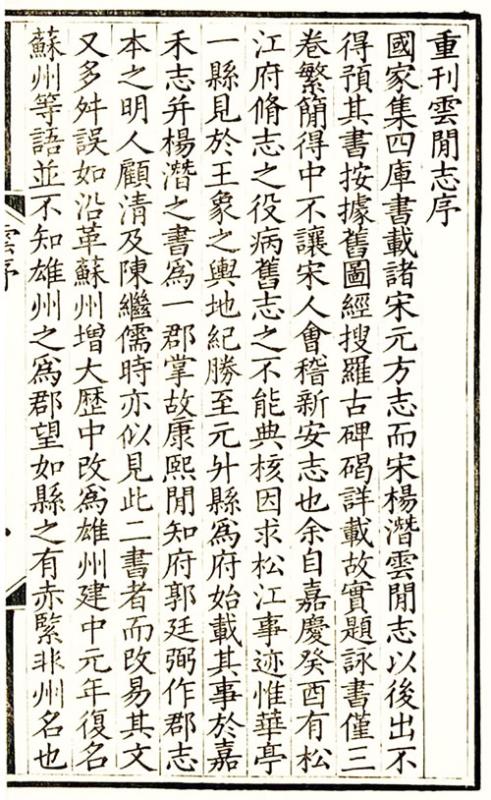 重刊雲閒志序
國家集四庫書載諸宋元方志而宋楊潛雲閒志以後出不
得預其書按據舊圖經搜羅古碑碣詳載故實題詠書僅三
卷繁簡得中不讓宋人會稽新安志也余自嘉慶癸酉有松
江府脩志之役病舊志之不能典核因求松江事迹惟華亭
一縣見於王象之輿地紀勝至元升縣爲府始載其事於嘉
禾志并楊潛之書爲一郡掌故康熙閒知府郭廷弼作郡志
本之明人顧清及陳繼儒時亦似見此二書者而改易其文
又多舛誤如沿革蘇州增大歷中改爲雄州建中元年復名
蘇州等語並不知雄州之爲郡望如縣之有赤緊非州名也
雲序